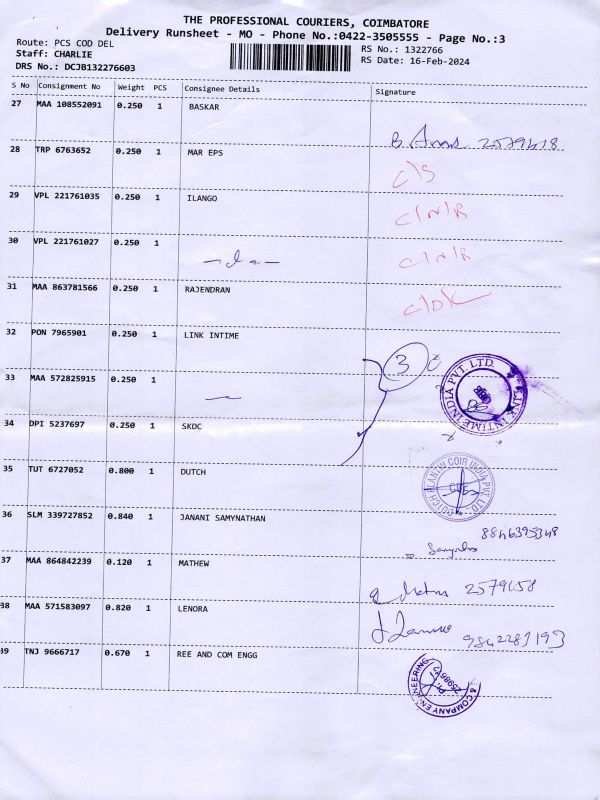 THE PROFESSIONAL COURIERS, COIMBATORE
Delivery Runsheet - MO - Phone No.:0422-3505555 - Page No.:3
Route: PCS COD DEL
RS No.: 1322766
Staff: CHARLIE
RS Date: 16-Feb-2024
DRS No.: DCJB132276603
S No Consignment No Weight PCS Consignee Details Signature
27 MAA 108552091 0.250 1 BASKAR
B.
28 TRP 6763652 0.250 1 MAR EPS
C/S
29 VPL 221761035 0.250 1 ILANGO
C/N/R
30 VPL 221761027 0.250 1
C/N/R
31 MAA 863781566 0.250 1 RAJENDRAN
32 PON 7965901 0.250 1 LINK INTIME
3
LINK INTIME INDIA PVT. LTD.
33 MAA 572825915 0.250 1
34 DPI 5237697 0.250 1 SKDC
35 TUT 6727052 0.800 1 DUTCH
COIR INDIA PVT LTD
36 SLM 339727852 0.840 1 JANANI SAMYNATHAN
37 MAA 864842239 0.120 1 MATHEW
2579658
38 MAA 571583097 0.820 1 LENORA
39 TNJ 9666717 0.670 1 REE AND COM ENGG
& COMPANY ENGINEERING